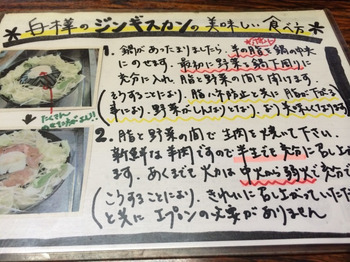 白樺のジンギスカンの美味しい食べ方
1. 鍋があったまりましたら、羊の脂を鍋の中央
にのせます。最初に野菜を鍋下周りに
充分に入れ 脂と野菜の間を開けます。
こうすることにより、脂ハネ防止と共に脂が下がる
事により、野菜が
2. 脂と野菜の間で生肉を焼いて下さい。
新鮮な羊肉ですので半生でも充分に召し上
ます。あくまでも火力は中火から弱火で
こうすることにより、きれいに召し上がっていただ
と共にエプロンの必要がありません
たくさん
のせた方がよい!!